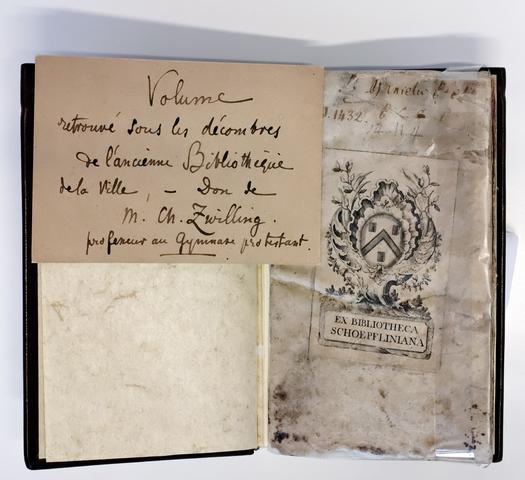 Volume
retrouvé sous les décombres
de l'ancienne Bibliothèque
de la Ville, — Don de
M. Ch. Zwilling.
professeur au Gymnase protestant.
1432.
EX BIBLIOTHECA
SCHOEPFLINIANA